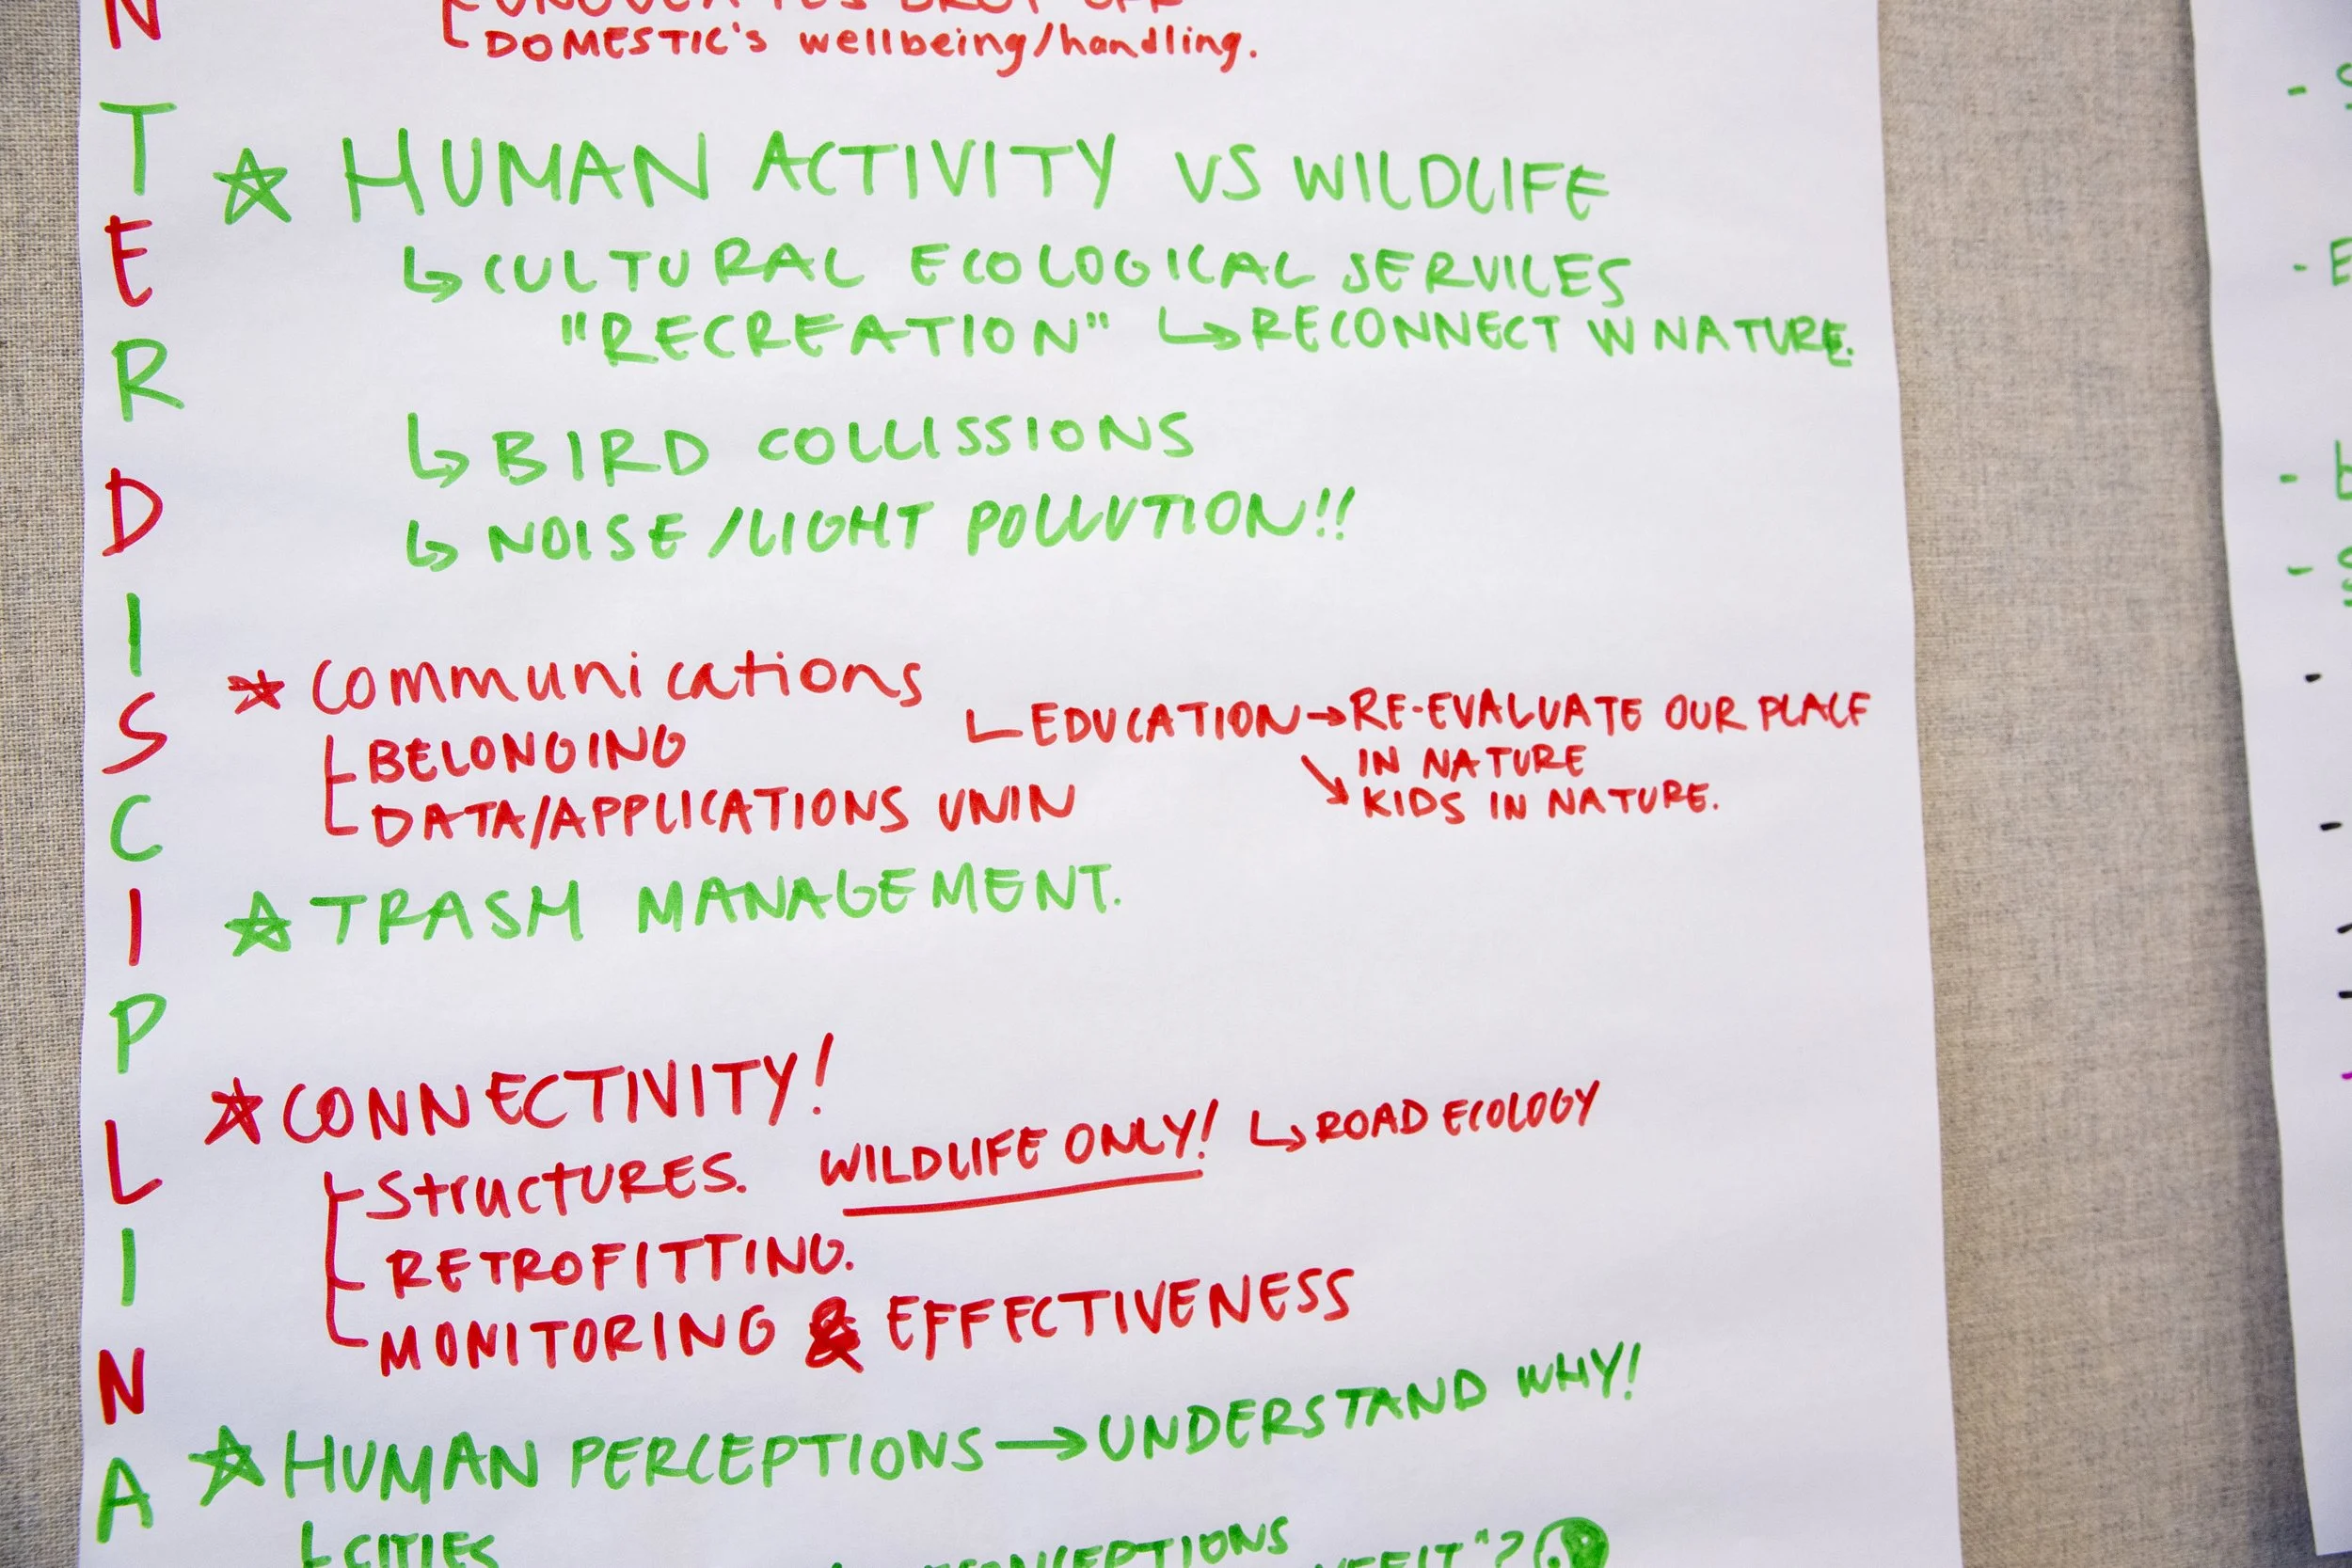 DOMESTIC's wellbeing/handling.
☆ HUMAN ACTIVITY VS WILDLIFE
↳ CULTURAL ECOLOGICAL SERVICES
"RECREATION" ↳ RECONNECT W NATURE.
↳ BIRD COLLISSIONS
↳ NOISE/LIGHT POLLUTION!!
☆ Communications
BELONGING
EDUCATION → RE-EVALUATE OUR PLACE
IN NATURE
↘ KIDS IN NATURE.
DATA/APPLICATIONS UNIN
☆ TRASH MANAGEMENT.
☆ CONNECTIVITY!
StructURES. WILDLIFE ONLY! ↳ ROAD ECOLOGY
RETROFITTING.
MONITORING & EFFECTIVENESS
☆ HUMAN PERCEPTIONS → UNDERSTAND WHY!
CITIES
N
T
E
R
D
I
S
C
I
P
L
I
N
A